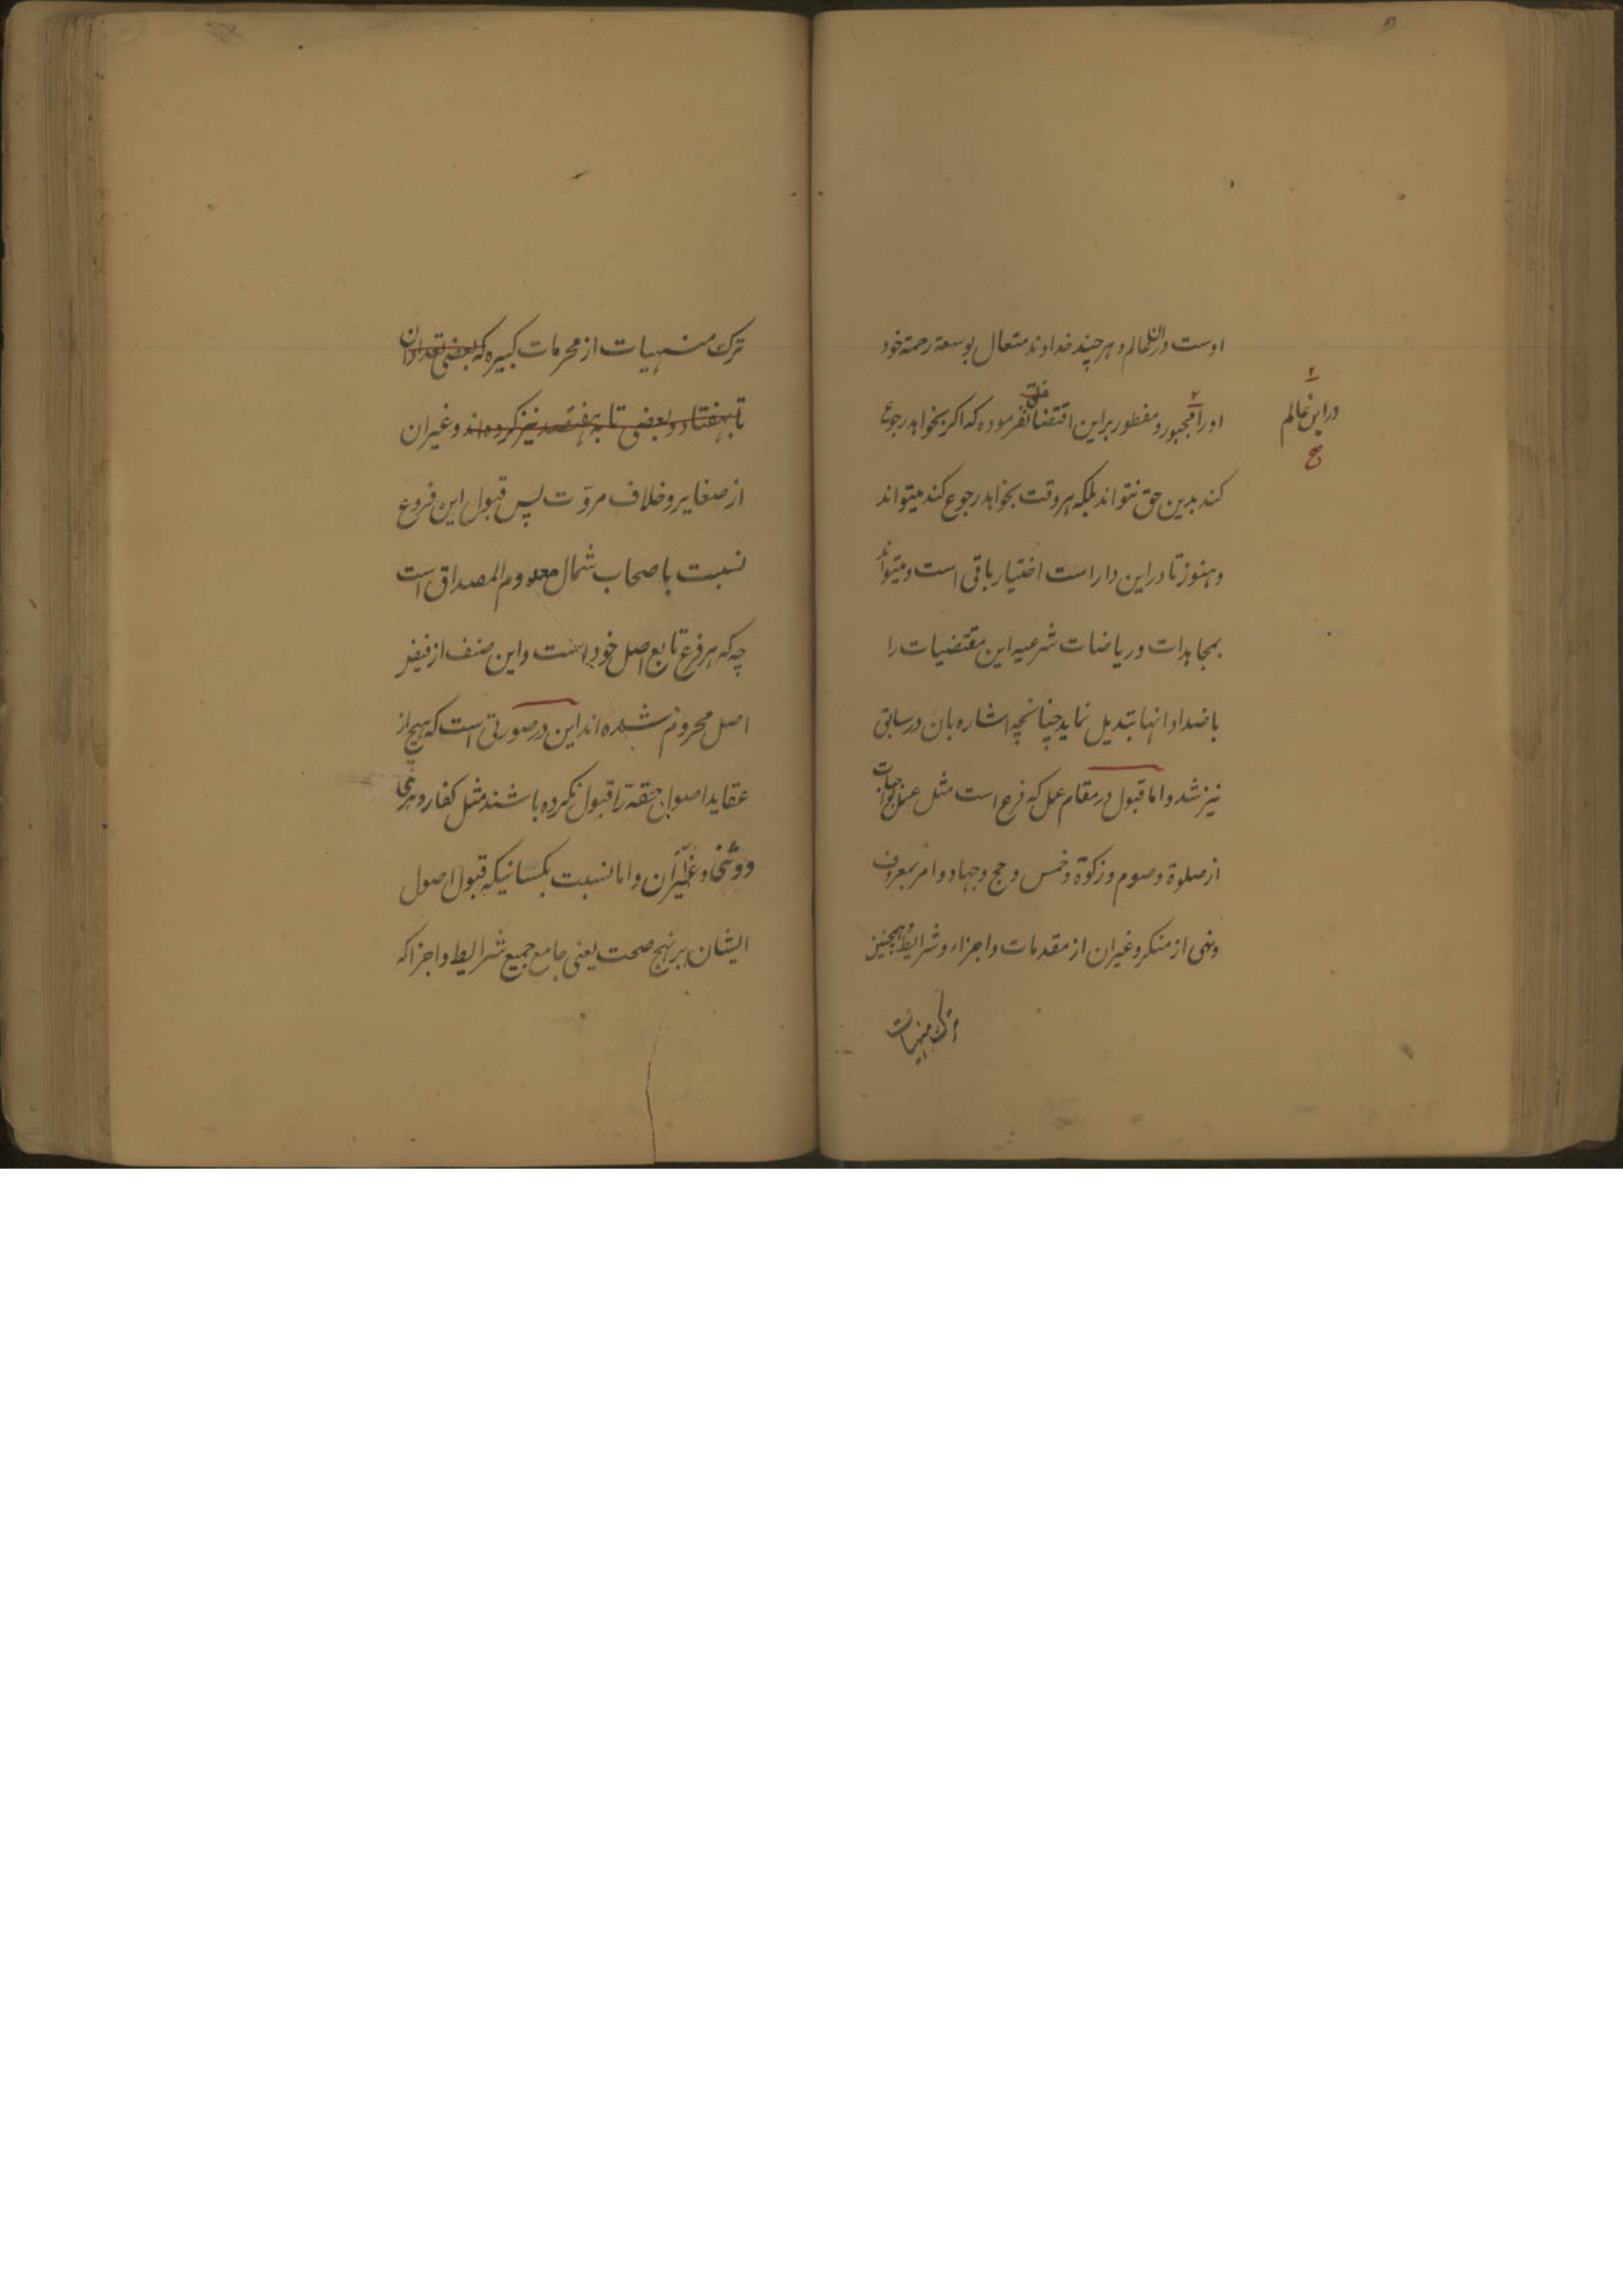 اوست در ان عالم و هر چند خداوند متعال بوسعة رحمة خود
در این عالم
صح
او را مجبور و مفطور بر این اقتضا خلق نفرموده که اکر بخواهد رجوع
کند بدین حق نتواند بلکه هر وقت بخواهد رجوع کند میتواند
و هنوز تا در این دار است اختیار باقی است و میتواند
بمجاهدات و ریاضات شرعیه این مقتضیات را
باضداد انها تبدیل نماید چنانچه اشاره بان در سابق
نیز شد و اما قبول در مقام عمل که فرع است مثل عمل بواجبات
از صلوة و صوم و زکوة و خمس و حج و جهاد و امر بمعروف
و نهی از منکر و غیران از مقدمات و اجزاء و شرایط و همچنین
ترک منهیات
ترک منهیات از محرمات کبیره که بعضی تعداد ان
تا بهفتاد و بعضی تا به هفتصد نیز کرده‌اند و غیران
از صغایر و خلاف مروّت پس قبول این فروع
نسبت باصحاب شمال معدوم المصداق است
چه که هر فرع تابع اصل خود است و این صنف از فیض
اصل محروم شده اند این در صورتی است که هیچ از
عقاید اصول حقّه را قبول نکرده باشند مثل کفار و هری
و وثنی و غیران و اما نسبت بکسانیکه قبول اصول
ایشان بر نهج صحت یعنی جامع جمیع شرایط و اجزا که